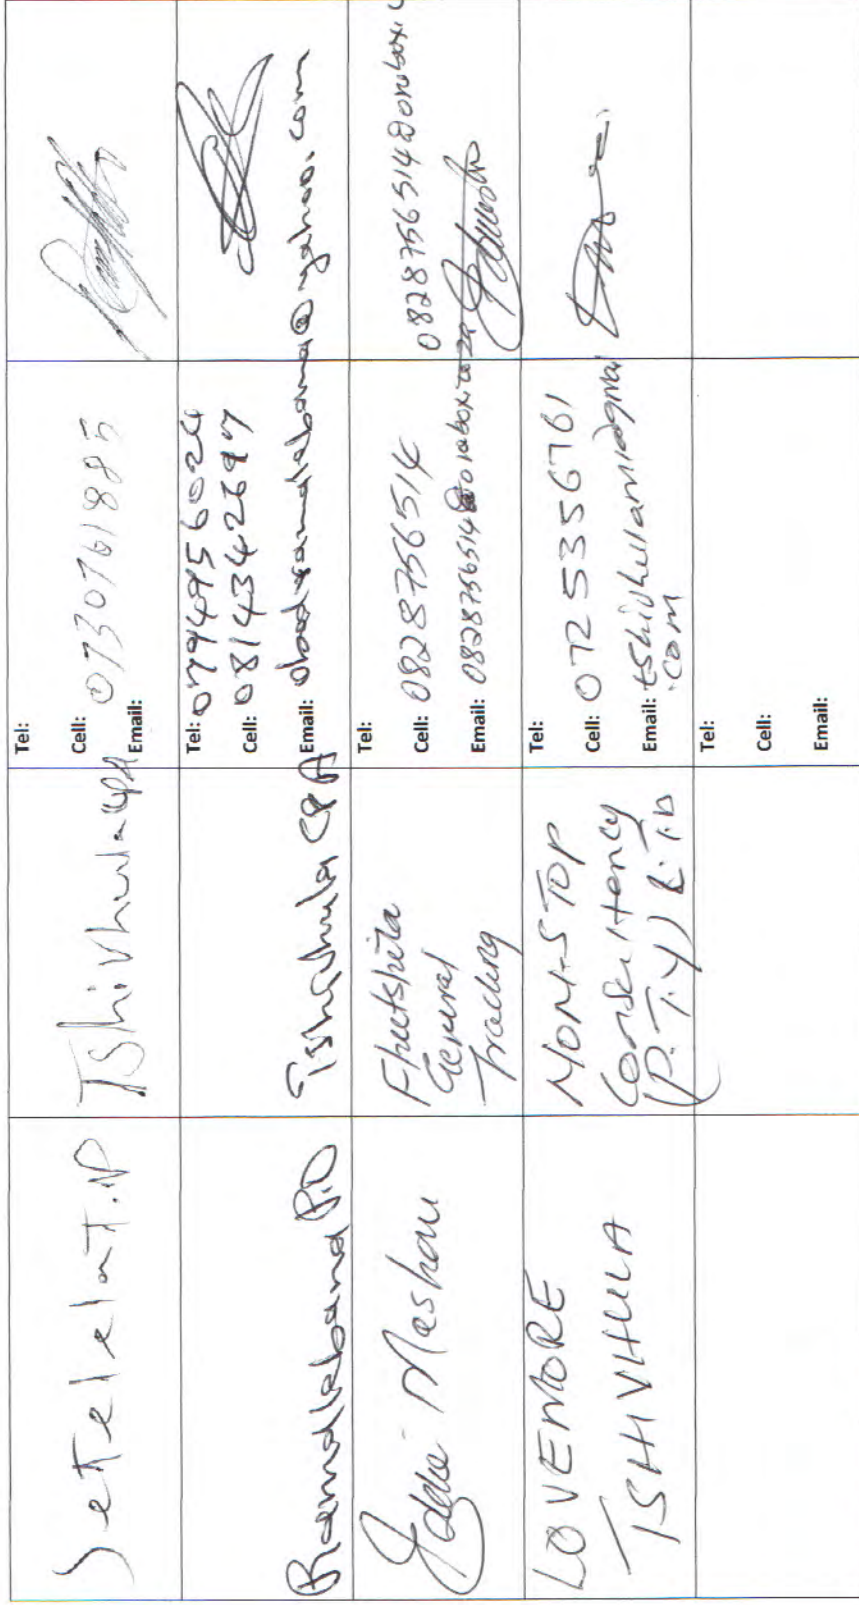 Setelela T.P
Tshivhula CPA
Tel:
Cell: 0730761885
Email:
Ramalebana P.D
Tshivhula CPA
Tel: 0794956024
0814342697
Cell:
Email: @yahoo.com
Eddie Mashau
Fhetshita
General
Trading
Tel:
Cell: 0828756514
Email: 0828756514@
0828756514@
LOVEMORE
TSHIVHULA
NON-STOP
Consultency
(P.T.Y) L.T.D
Tel:
Cell: 072 5356761
Email:
.com
Tel:
Cell:
Email: